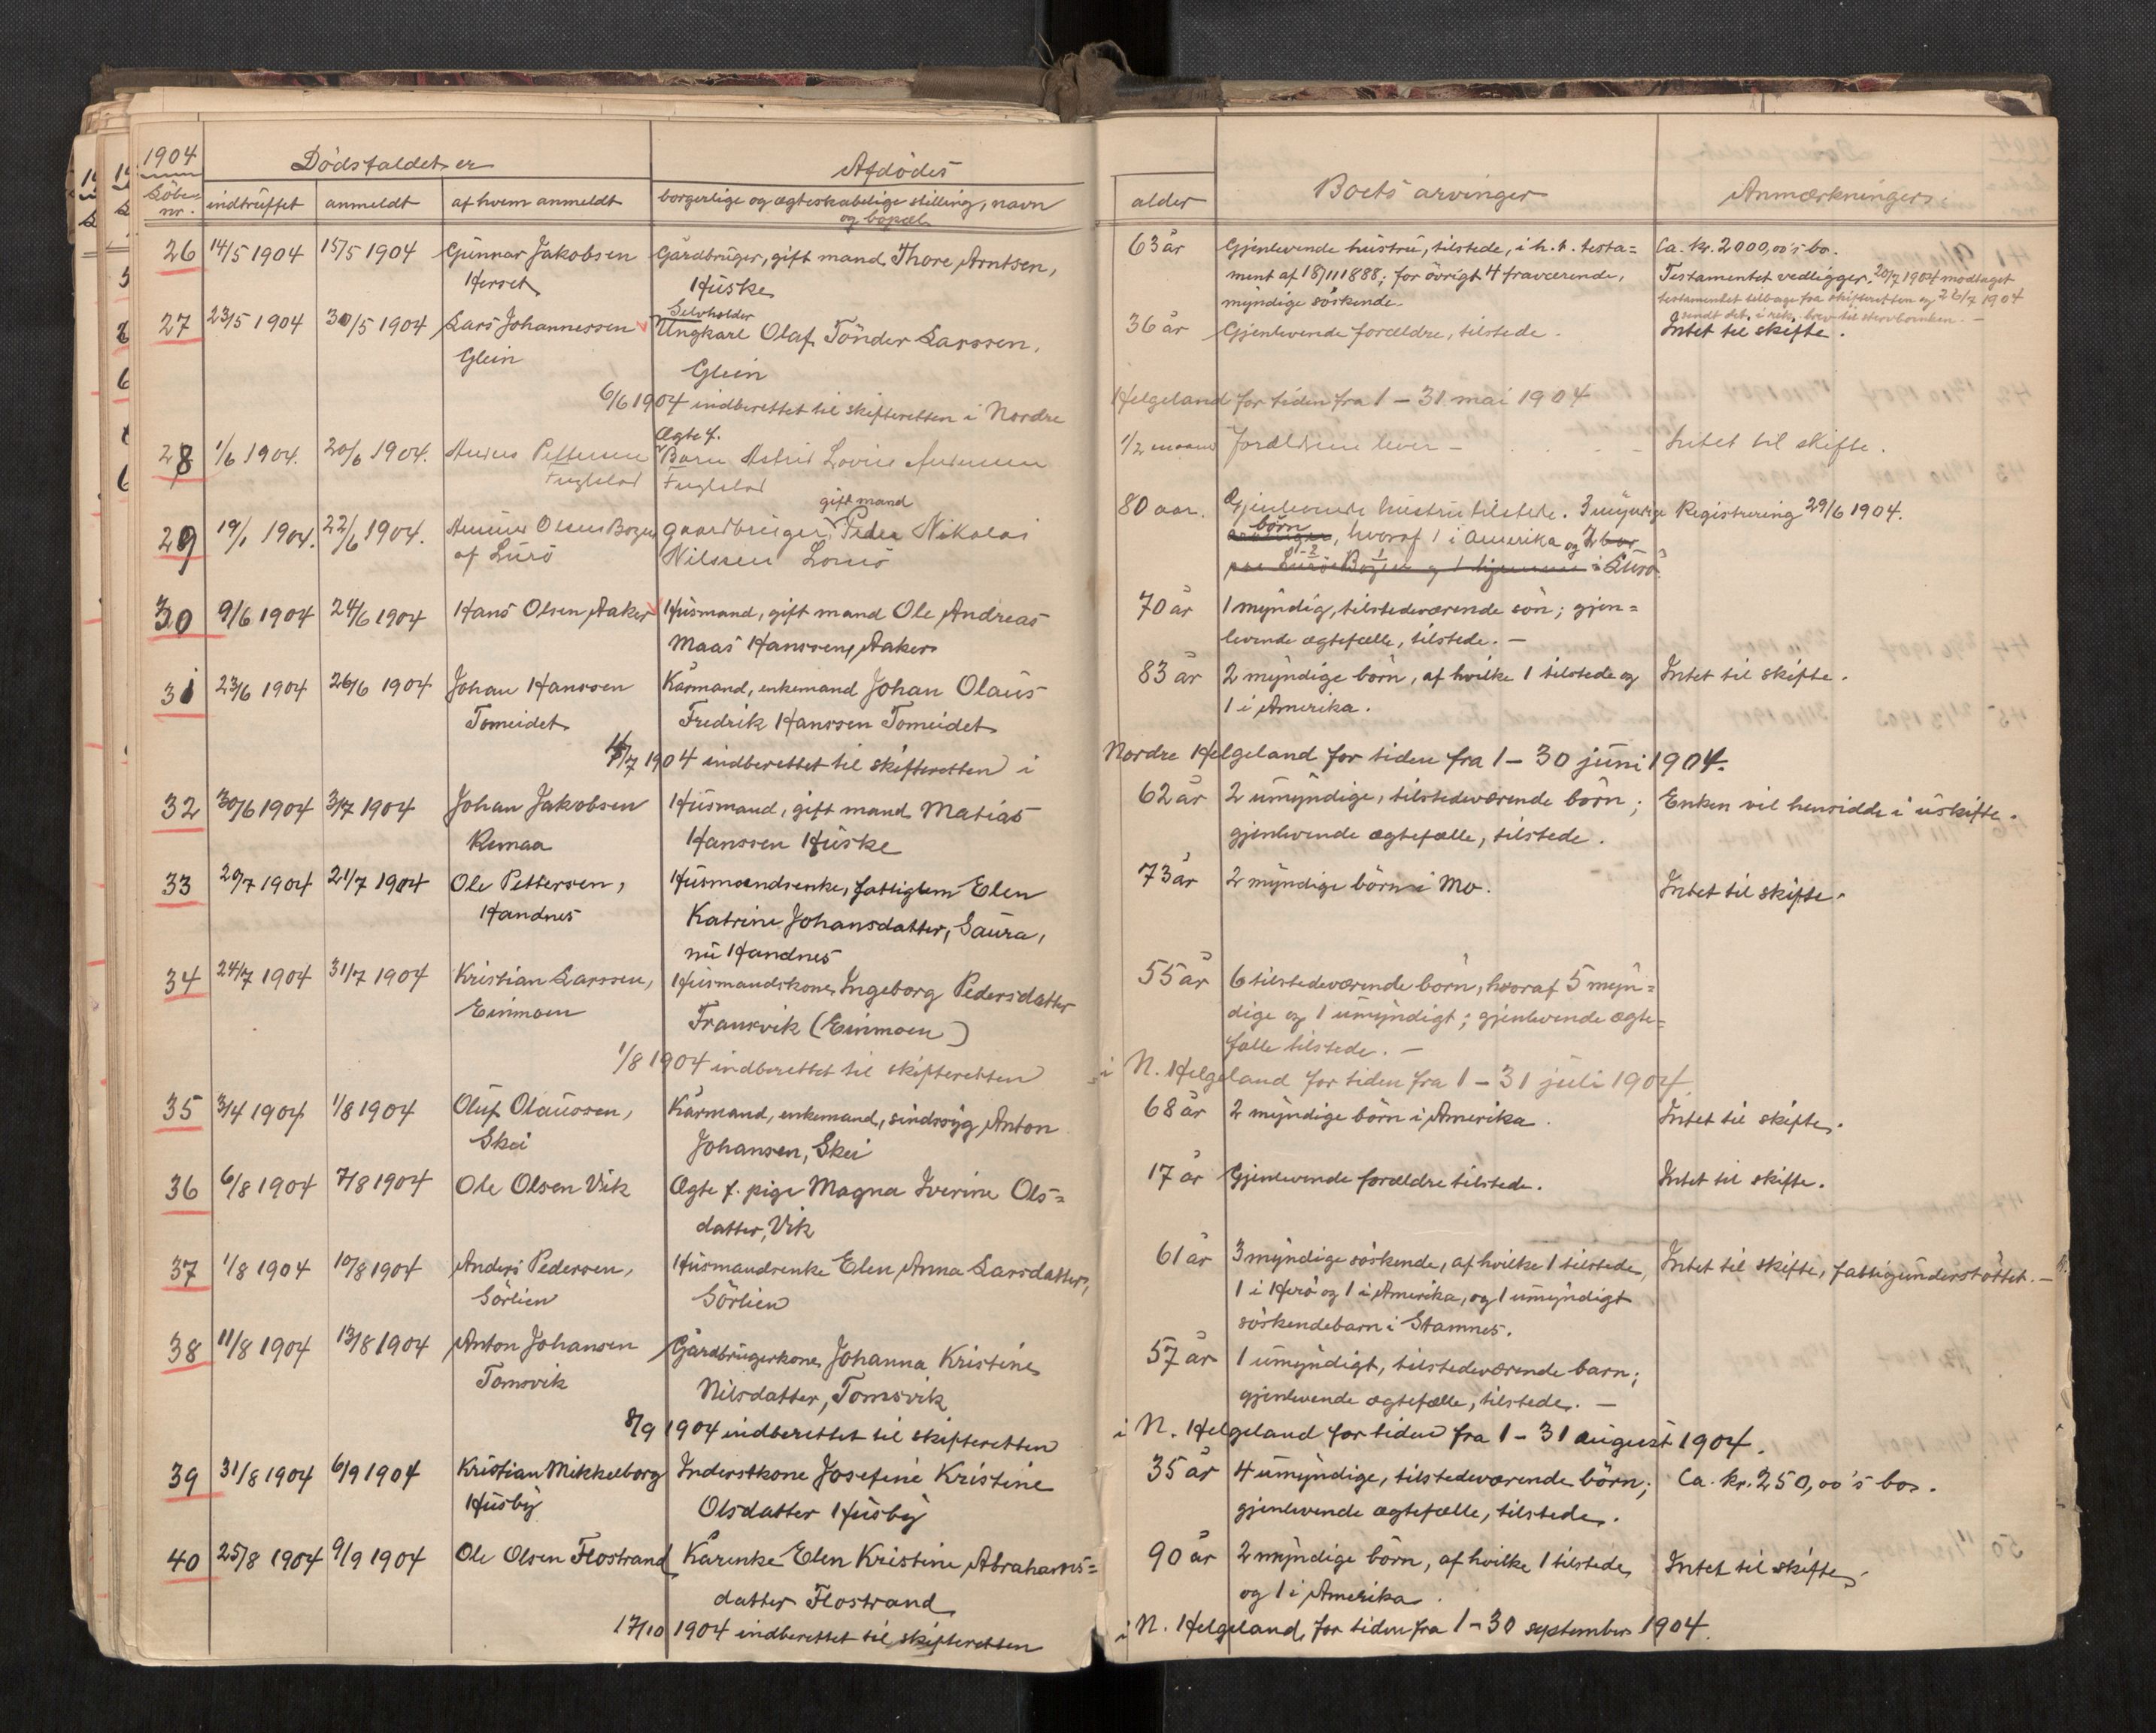 1904
Dödsfaldet er
Afdödes
Löbe-
nr.
indtruffet
anmeldt
af hvem anmeldt
borgerlige og ægteskabelige stilling, navn
og bopæl
alder
Boets arvinger
Anmærkninger
26 14/5 1904 15/5 1904 Gunnar Jakobsen Gårdbruger, gift mand Thore Arntsen, 63 år Gjenlevende hustru, tilstede, i h. t. testa= Ca. kr. 2000,00's bo.
Herset Huske ment af 18/11 1888; for övrigt 4 fraværende, Testamentet vedligger. 20/7 1904 modtaget
myndige söskende. testamentet tilbage fra skifteretten og 26/7 1904
sendt det i rek. brev til
Selvholder
27 23/5 1904 30/5 1904 Lars Johannessen Ungkarl Olaf Tönder Larssen, 36 år Gjenlevende forældre, tilstede. Intet til skifte.
Glein Glein
6/6 1904 indberettet til skifteretten i Nordre Helgeland for tiden fra 1 - 31 mai 1904
Ægte f.
28 1/6 1904. 20/6 1904. Pettersen Barn Astrid 1/2 Forældrene lever - Intet til skifte.
gift mand
29 19/1 1904. 22/6 1904. Olsen Bogen gaardbruger Peder Nikolai 80 aar. Gjenlevende hustru tilstede. 3 myndige Registrering 29/6 1904.
af Lurö Nilssen börn, hvoraf 1 i Amerika og 2
i Lurö
30 9/6 1904 24/6 1904 Hans Olsen Aaker Husmand, gift mand Ole Andreas 70 år 1 myndig, tilstedeværende sön; gjen=
Maas Hanssen, Aaker levende ægtefælle, tilstede. -
31 23/6 1904 26/6 1904 Johan Hanssen Kårmand, enkemand Johan Olaus 83 år 2 myndige börn, af hvilke 1 tilstede og Intet til skifte.
Tomeidet Fredrik Hanssen Tomeidet 1 i Amerika.
/7 1904 indberettet til skifteretten i Nordre Helgeland for tiden fra 1 - 30 juni 1904.
32 30/6 1904 3/7 1904 Johan Jakobsen Husmand, gift mand Matias 62 år 2 umyndige, tilstedeværende börn; Enken vil hensidde i uskifte.
Remaa Hanssen Huske gjenlevende ægtefælle, tilstede.
33 20/7 1904 21/7 1904 Ole Pettersen, Husmandsenke, fattiglem Elen 73 år 2 myndige börn i Mo. Intet til skifte.
Handnes Katrine Johansdatter, Saura,
nu Handnes
34 24/7 1904 31/7 1904 Kristian Larssen, Husmandskone Ingeborg Pedersdatter 55 år 6 tilstedeværende börn, hvoraf 5 myn=
Einmoen Fransvik (Einmoen) dige og 1 umyndigt; gjenlevende ægte=
fælle tilstede. -
1/8 1904 indberettet til skifteretten i N. Helgeland for tiden fra 1 - 31 juli 1904.
35 3/4 1904 1/8 1904 Oluf Olaussen, Kårmand, enkemand, sindssyg Anton 68 år 2 myndige börn i Amerika. Intet til skifte.
Skei Johansen, Skei
36 6/8 1904 7/8 1904 Ole Olsen Vik Ægte f. pige Magna Iverine Ols= 17 år Gjenlevende forældre tilstede. Intet til skifte.
datter, Vik
37 1/8 1904 10/8 1904 Anders Pedersen, Husmandsenke Elen Anna Larsdatter, 61 år 3 myndige söskende, af hvilke 1 tilstede, Intet til skifte, fattigunderstöttet. -
Sörlien Sörlien 1 i Herö og 1 i Amerika, og 1 umyndigt
söskendebarn i Stamnes.
38 11/8 1904 13/8 1904 Anton Johansen Gårdbrugerkone Johanna Kristine 57 år 1 umyndigt, tilstedeværende barn;
Tomsvik Nilsdatter, Tomsvik gjenlevende ægtefælle, tilstede. -
8/9 1904 indberettet til skifteretten i N. Helgeland for tiden fra 1 - 31 august 1904.
39 31/8 1904 6/9 1904 Kristian Mikkelborg Inderstkone Josefine Kristine 35 år 4 umyndige, tilstedeværende börn; Ca. kr. 250,00's bo.
Husby Olsdatter Husby gjenlevende ægtefælle, tilstede.
40 25/8 1904 9/9 1904 Ole Olsen Flostrand Kårenke Elen Kristine Abrahams= 90 år 2 myndige börn, af hvilke 1 tilstede Intet til skifte.
datter Flostrand og 1 i Amerika.
17/10 1904 indberettet til skifteretten i N. Helgeland for tiden fra 1 - 30 september 1904.